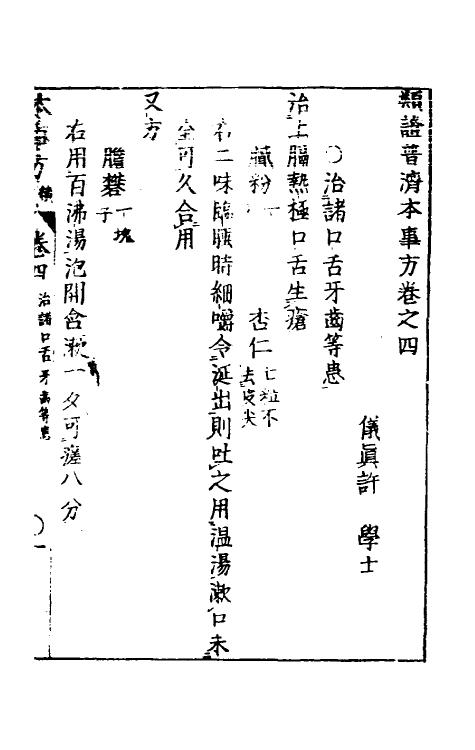 類證普濟本事方卷之四
儀眞許　學士
○治諸口舌牙齒等患
治上膈熱極口舌生瘡
膩粉一　杏仁七粒不去皮尖
右二味臨臥時細嚼令涎出則吐之用温湯漱口未
全可久合用
又方
膽礬一塊子
右用百沸湯泡開含漱一夕可瘥八分
本事方 卷四 治諸口舌牙齒等患 一